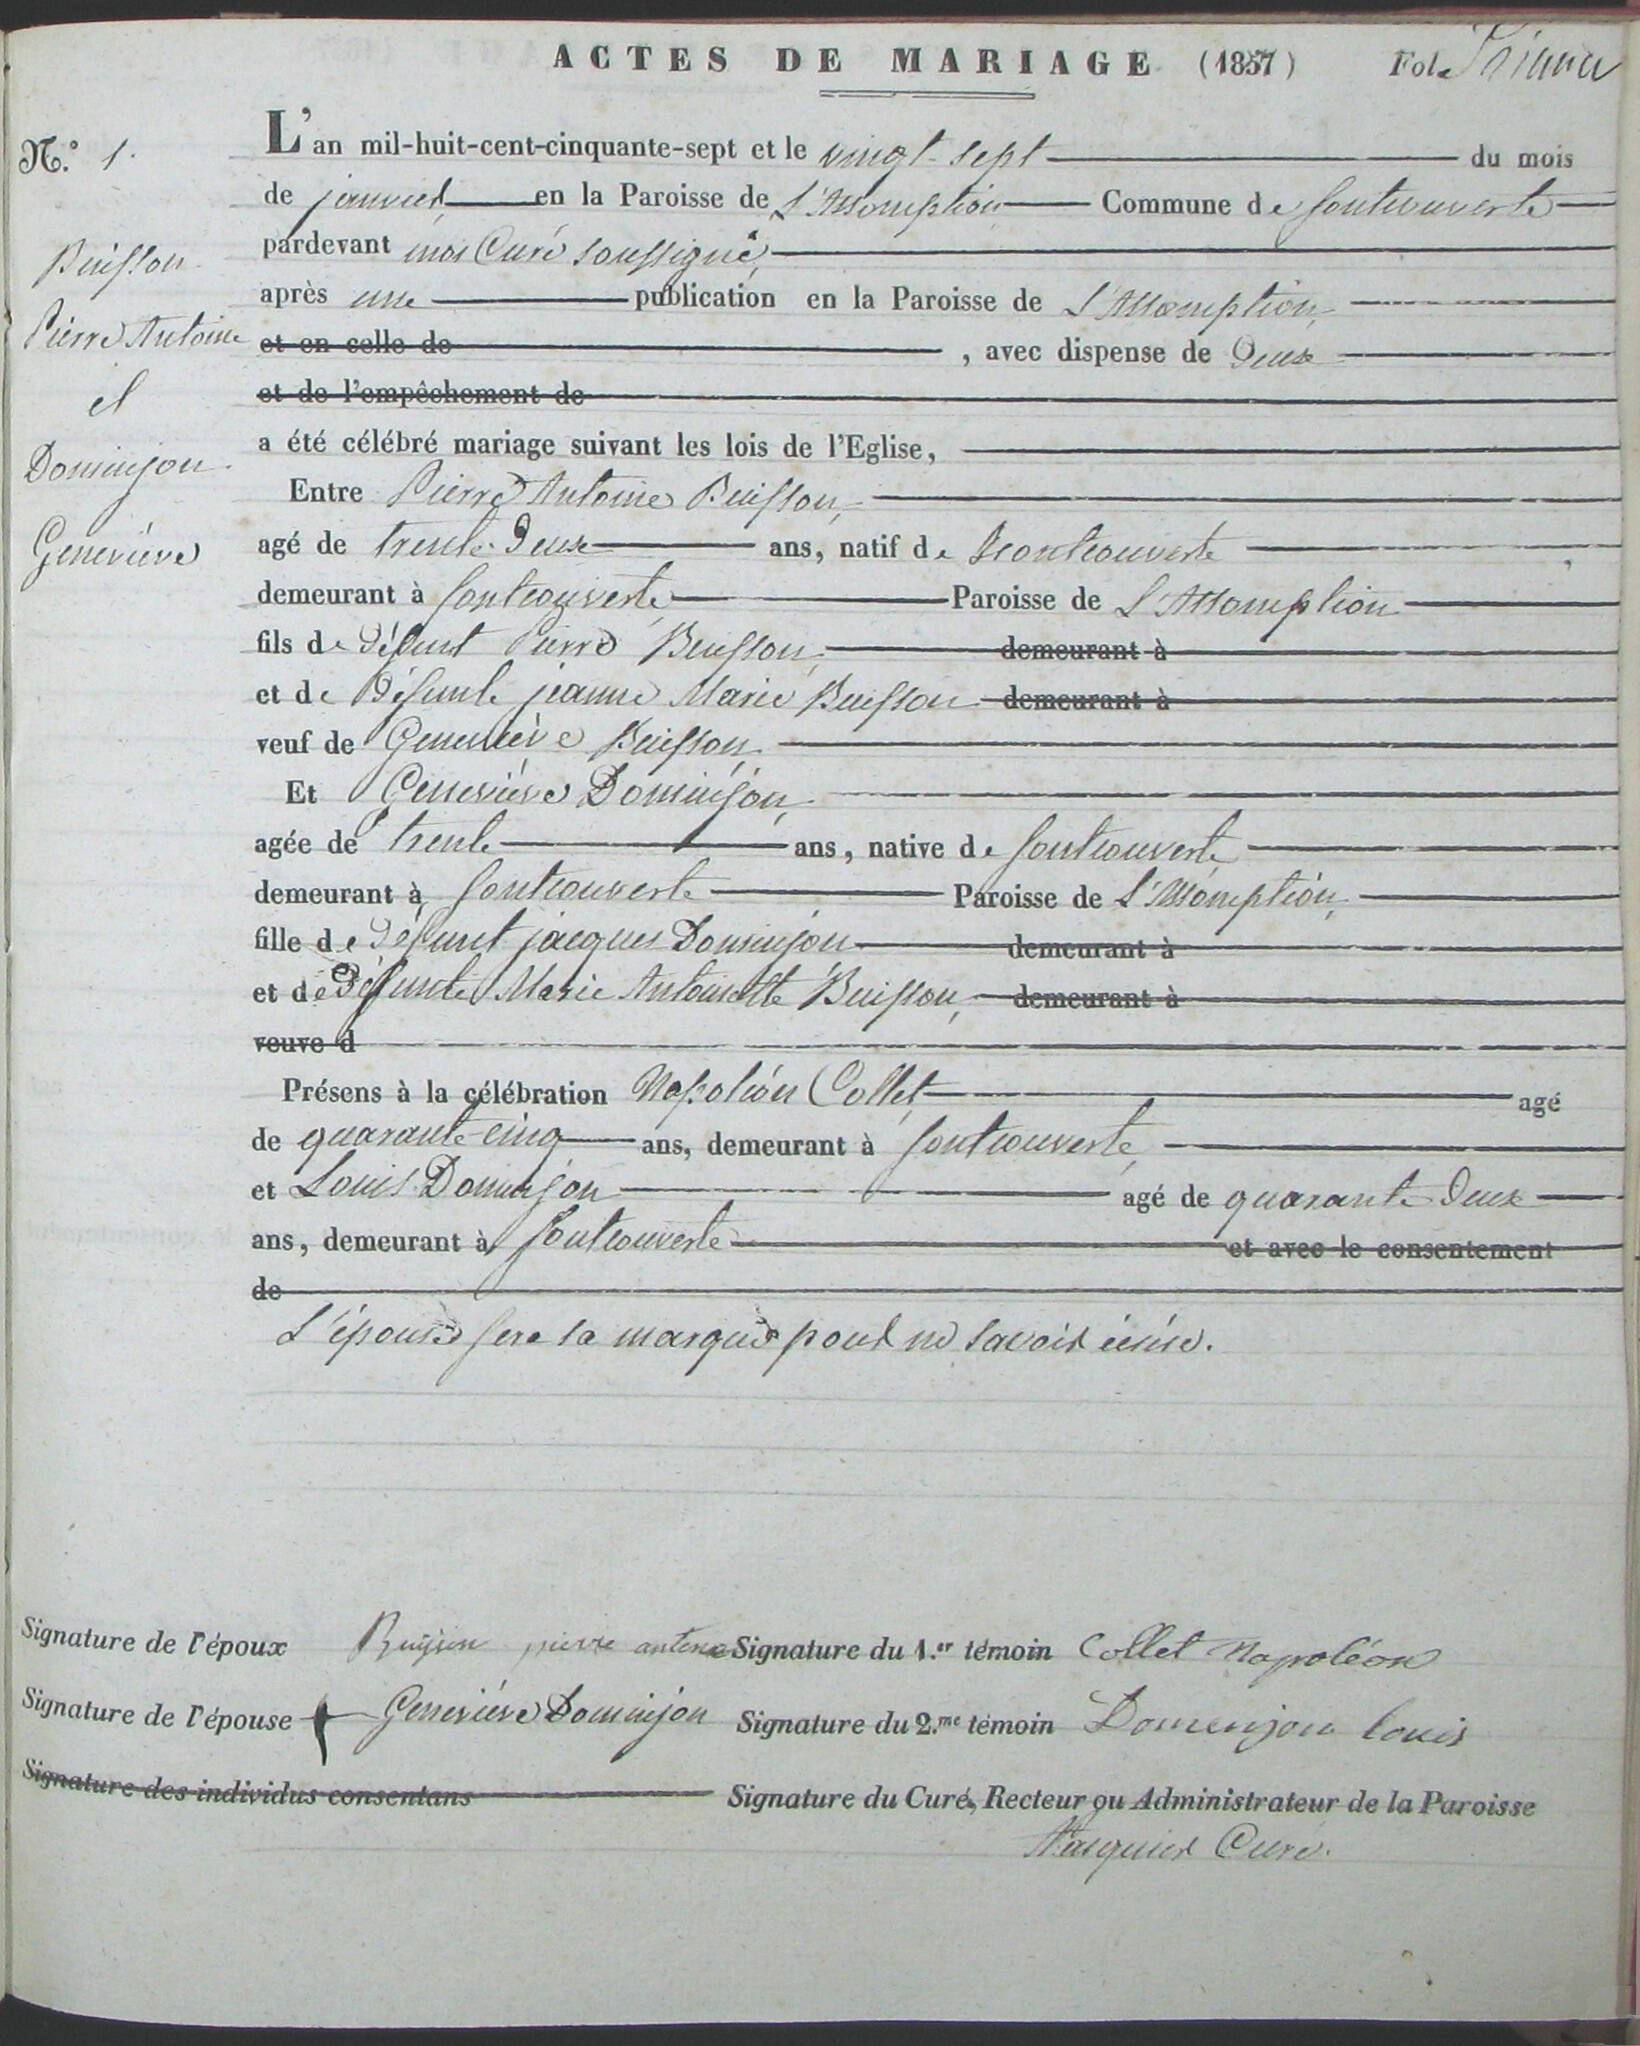 ACTES DE MARIAGE (1857) Fol.
N.º 1.
L'an mil-huit-cent-cinquante-sept et le vingt-sept du mois
de janvier en la Paroisse de L'Assomption Commune de fontcouverte
pardevant moi Curé soussigné,
après une publication en la Paroisse de L'Assomption,
et en celle de , avec dispense de Deux
et de l'empêchement de
a été célébré mariage suivant les lois de l'Eglise,
Buisson
Pierre Antoine
et
Dominjon
Geneviève
Entre Pierre Antoine Buisson,
agé de trente-Deux ans, natif de fontcouverte
demeurant à fontcouverte, Paroisse de L'Assomption
fils de Défunt Pierre Buisson, demeurant à
et de Défunte jeanne Marie Buisson demeurant à
veuf de Geneviève Buisson,
Et Geneviève Dominjon,
agée de trente ans, native de fontcouverte
demeurant à fontcouverte Paroisse de L'Assomption,
fille de Défunt jacques Dominjon demeurant à
et de Défunte Marie Antoinette Buisson, demeurant à
veuve d
Présens à la célébration Napoléon Collet agé
de quarante-cinq ans, demeurant à fontcouverte,
et Louis Dominjon agé de quarante Deux
ans, demeurant à fontcouverte et avec le consentement
de
L'épouse fera sa marque pour ne savoir écrire.
Signature de l'époux Buisson pierre antoine Signature du 1.er témoin Collet Napoléon
Signature de l'épouse + Geneviève Dominjon Signature du 2.me témoin Domenjon louis
Signature des individus consentans Signature du Curé, Recteur ou Administrateur de la Paroisse
Curé.